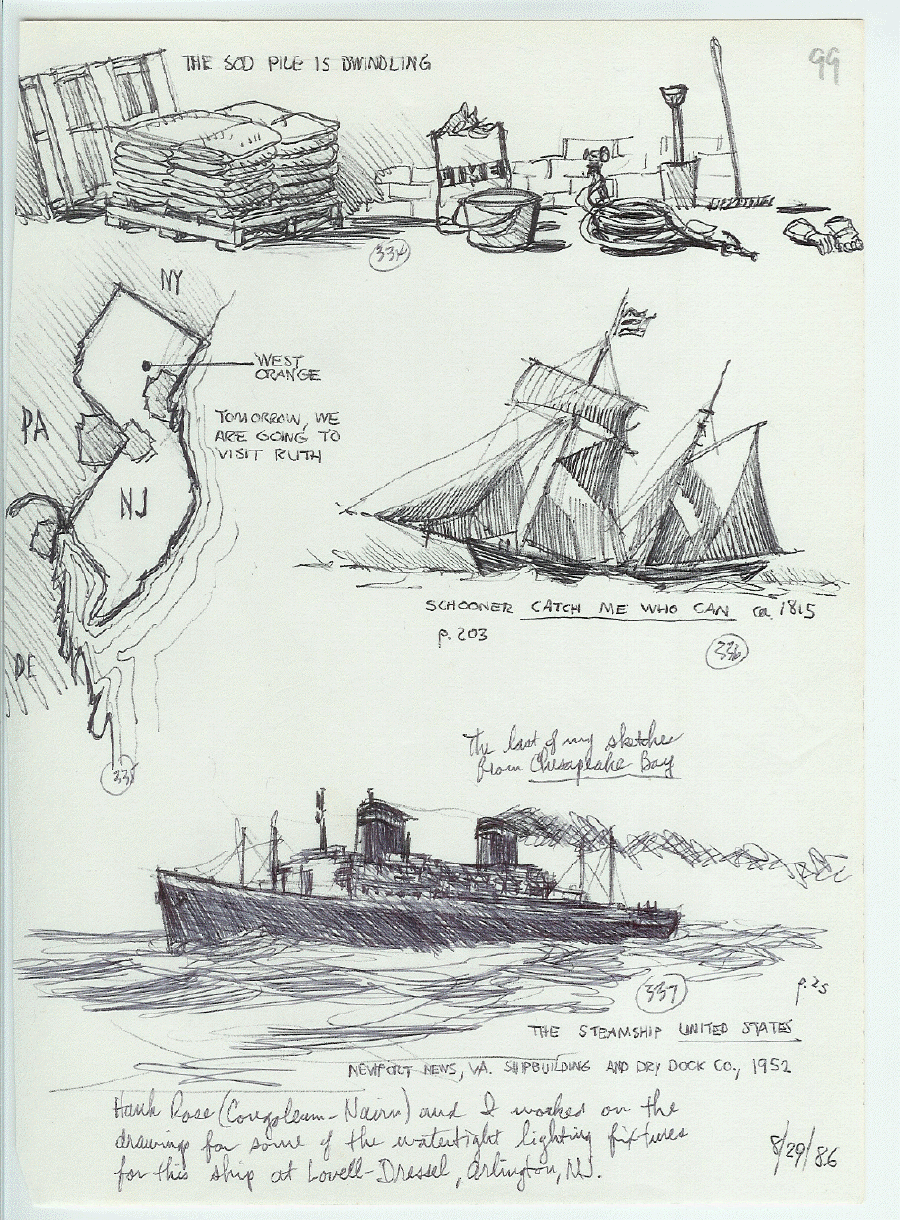 THE SOD PILE IS DWINDLING
99
LIME
334
NY
WEST
ORANGE
PA
TOMORROW, WE
ARE GOING TO
VISIT RUTH
NJ
DE
335
SCHOONER CATCH ME WHO CAN ca. 1815
p. 203
336
The last of my sketches
from Chesapeake Bay
337
p. 25
THE STEAMSHIP UNITED STATES
NEWPORT NEWS, VA. SHIPBUILDING AND DRY DOCK CO., 1952
Hank Rose (Congoleum-Nairn) and I worked on the
drawings for some of the watertight lighting fixtures
for this ship at Lovell-Dressel, Arlington, NJ.
8/29/86